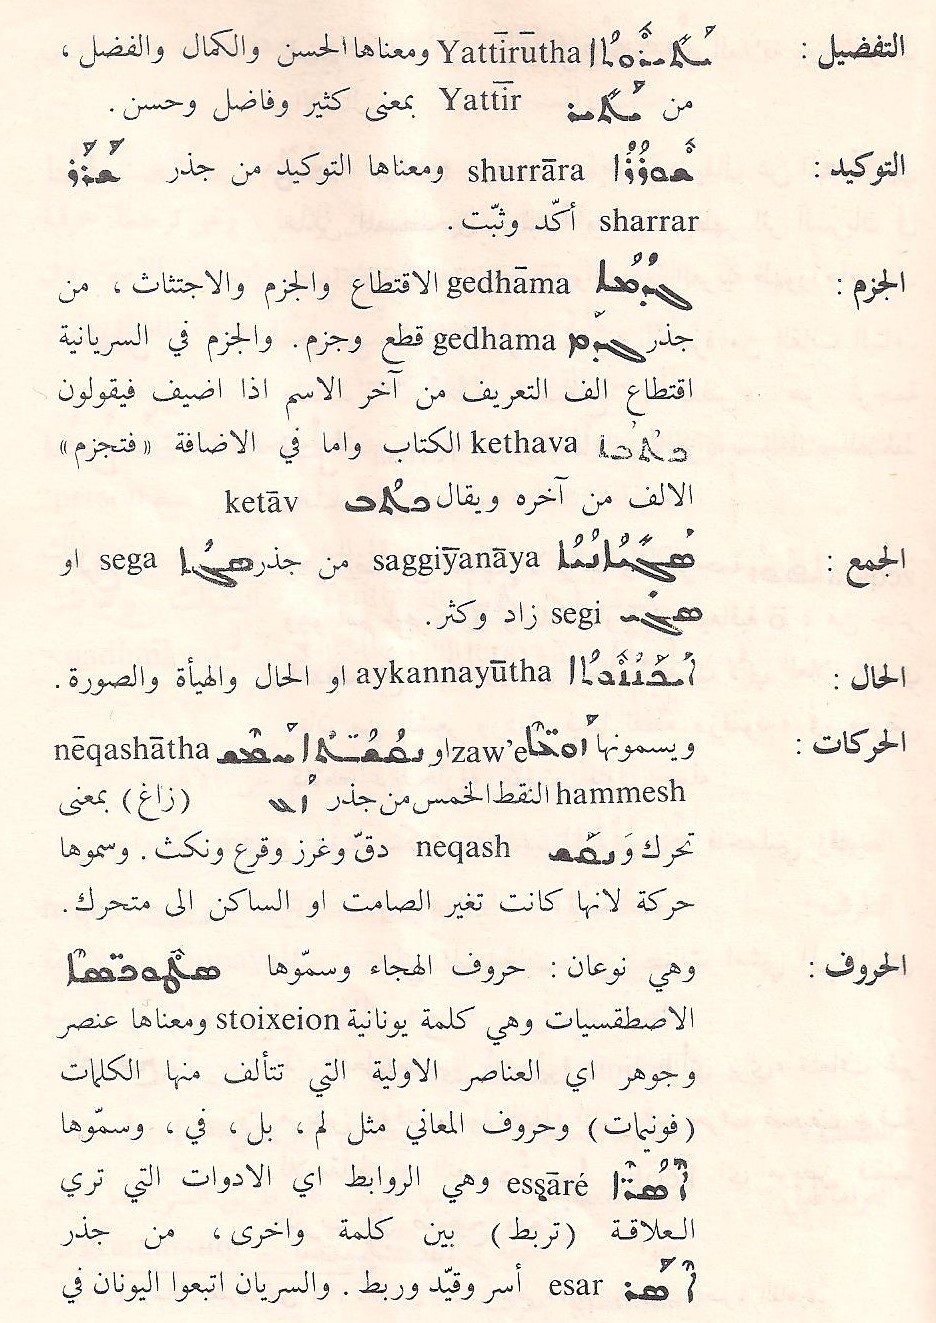 التفضيل : ܝܰܬܺܝܪܽܘܬܳܐ Yattīrūtha ومعناها الحسن والكمال والفضل ،
من ܝܰܬܺܝܪ Yattīr بمعنى كثير وفاضل وحسن .
التوكيد : ܫܽܘܪܳܪܳܐ shurrāra ومعناها التوكيد من جذر ܫܰܪܰܪ
sharrar أكّد وثبّت .
الجزم : ܓܕܳܡܳܐ gedhāma الاقتطاع والجزم والاجتثاث ، من
جذر ܓܕܡ gedhama قطع وجزم . والجزم في السريانية
اقتطاع الف التعريف من آخر الاسم اذا اضيف فيقولون
ܟܬܳܒܳܐ kethava الكتاب واما في الاضافة «فتجزم»
الالف من آخره ويقال ܟܬܳܒ ketāv
الجمع : ܣܰܓܺܝܳܐܢܳܝܳܐ saggiȳanāya من جذر ܣܓܳܐ sega او
ܣܓܺܝ segi زاد وكثر .
الحال : ܐܰܝܟܰܢܳܝܽܘܬܳܐ aykannayūtha او الحال والهيأة والصورة .
الحركات : ويسمونها ܙܰܘܥ̈ܶܐ zaw’e او ܢܩܳܫ̈ܳܬܳܐ ܚܰܡܶܫ nēqashātha
hammesh النقط الخمس من جذر ܙܳܥ (زاغ) بمعنى
تحرك وَ ܢܩܰܫ neqash دقّ وغرز وقرع ونكث . وسموها
حركة لانها كانت تغير الصامت او الساكن الى متحرك .
الحروف : وهي نوعان : حروف الهجاء وسمّوها ܣܛܘܟ̈ܣܐ
الاصطقسيات وهي كلمة يونانية stoixeion ومعناها عنصر
وجوهر اي العناصر الاولية التي تتألف منها الكلمات
(فونيمات) وحروف المعاني مثل لم ، بل ، في ، وسمّوها
ܐܶܣܳܪ̈ܶܐ essāré وهي الروابط اي الادوات التي تري
العلاقة (تربط) بين كلمة واخرى ، من جذر
ܐܶܣܰܪ esar أسر وقيّد وربط . والسريان اتبعوا اليونان في